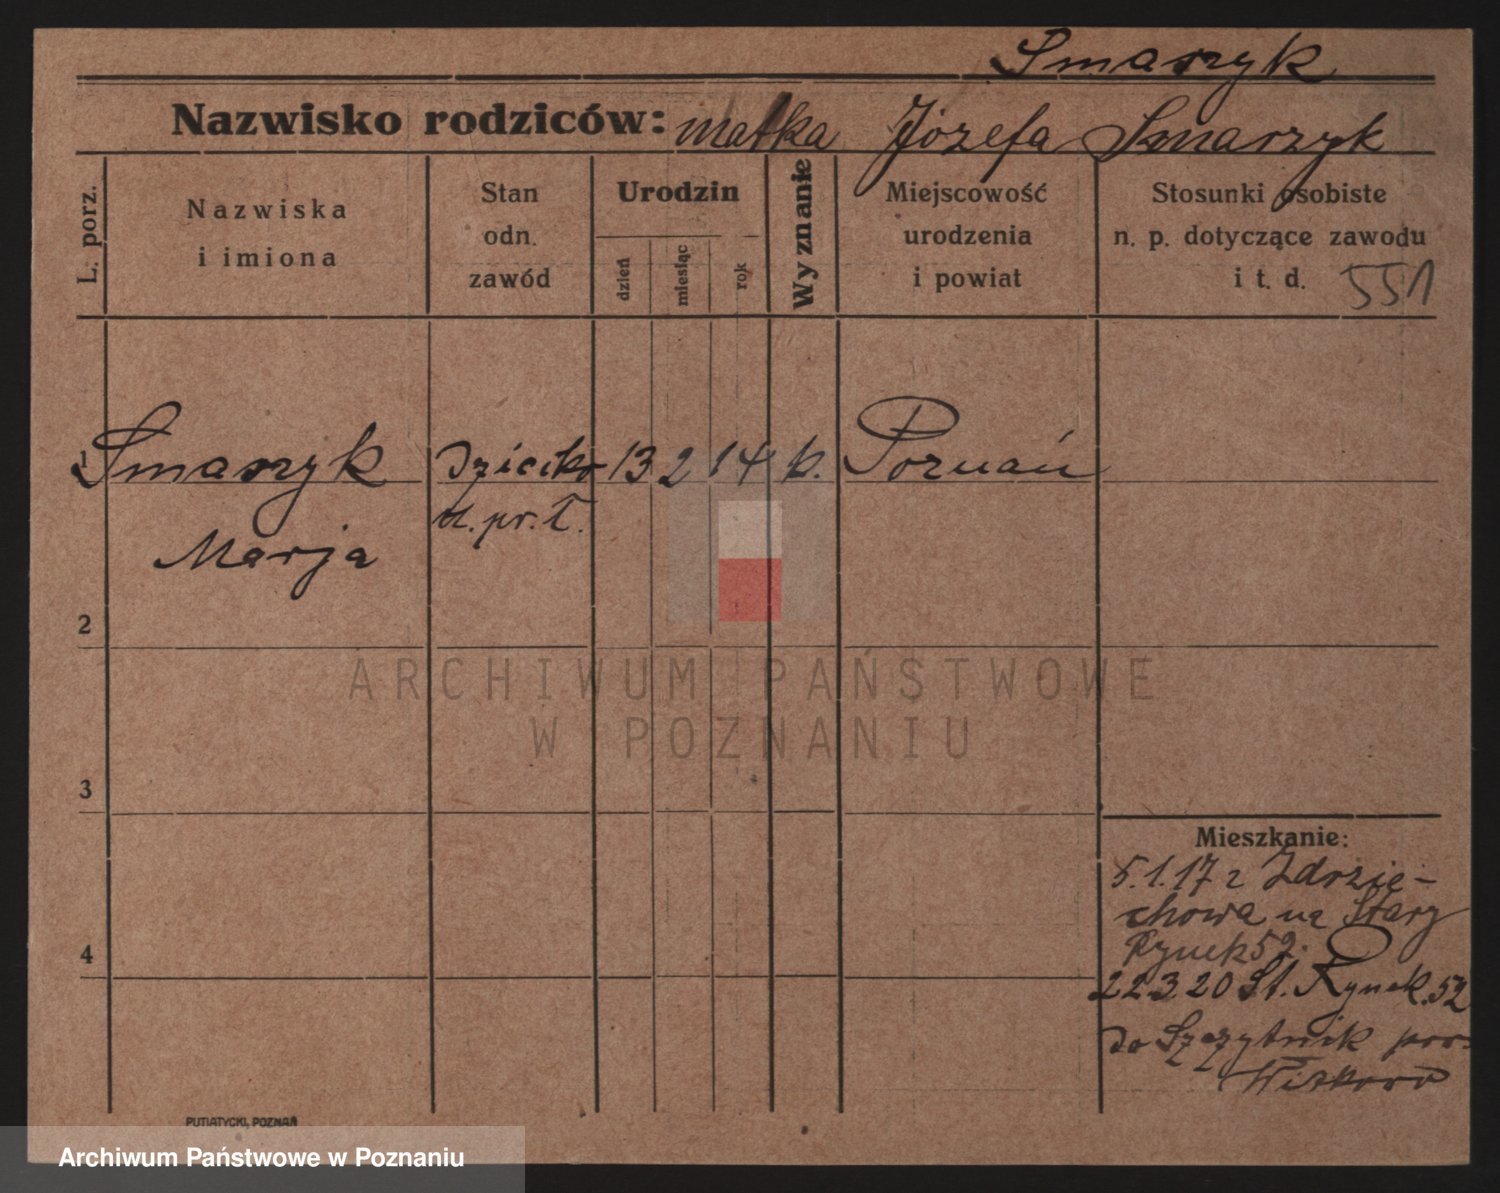 Smaszyk
Nazwisko rodziców: matka Józefa Smarzyk
L. porz.
Nazwiska
i imiona
Stan
odn.
zawód
Urodzin
dzień
miesiąc
rok
Wyznanie
Miejscowość
urodzenia
i powiat
Stosunki osobiste
n. p. dotyczące zawodu
i t. d.
551
1 Smaszyk dziecko 13 2 14 k. Poznań
Marja
2
3
4
Mieszkanie:
5.1.17 z Zdzie-
chowa na Stary
Rynek 52.
22 3 20 St. Rynek. 52
do Szczytnik pow.
Witkowo
PUTIATYCKI, POZNAŃ
ARCHIWUM PAŃSTWOWE
W POZNANIU
Archiwum Państwowe w Poznaniu